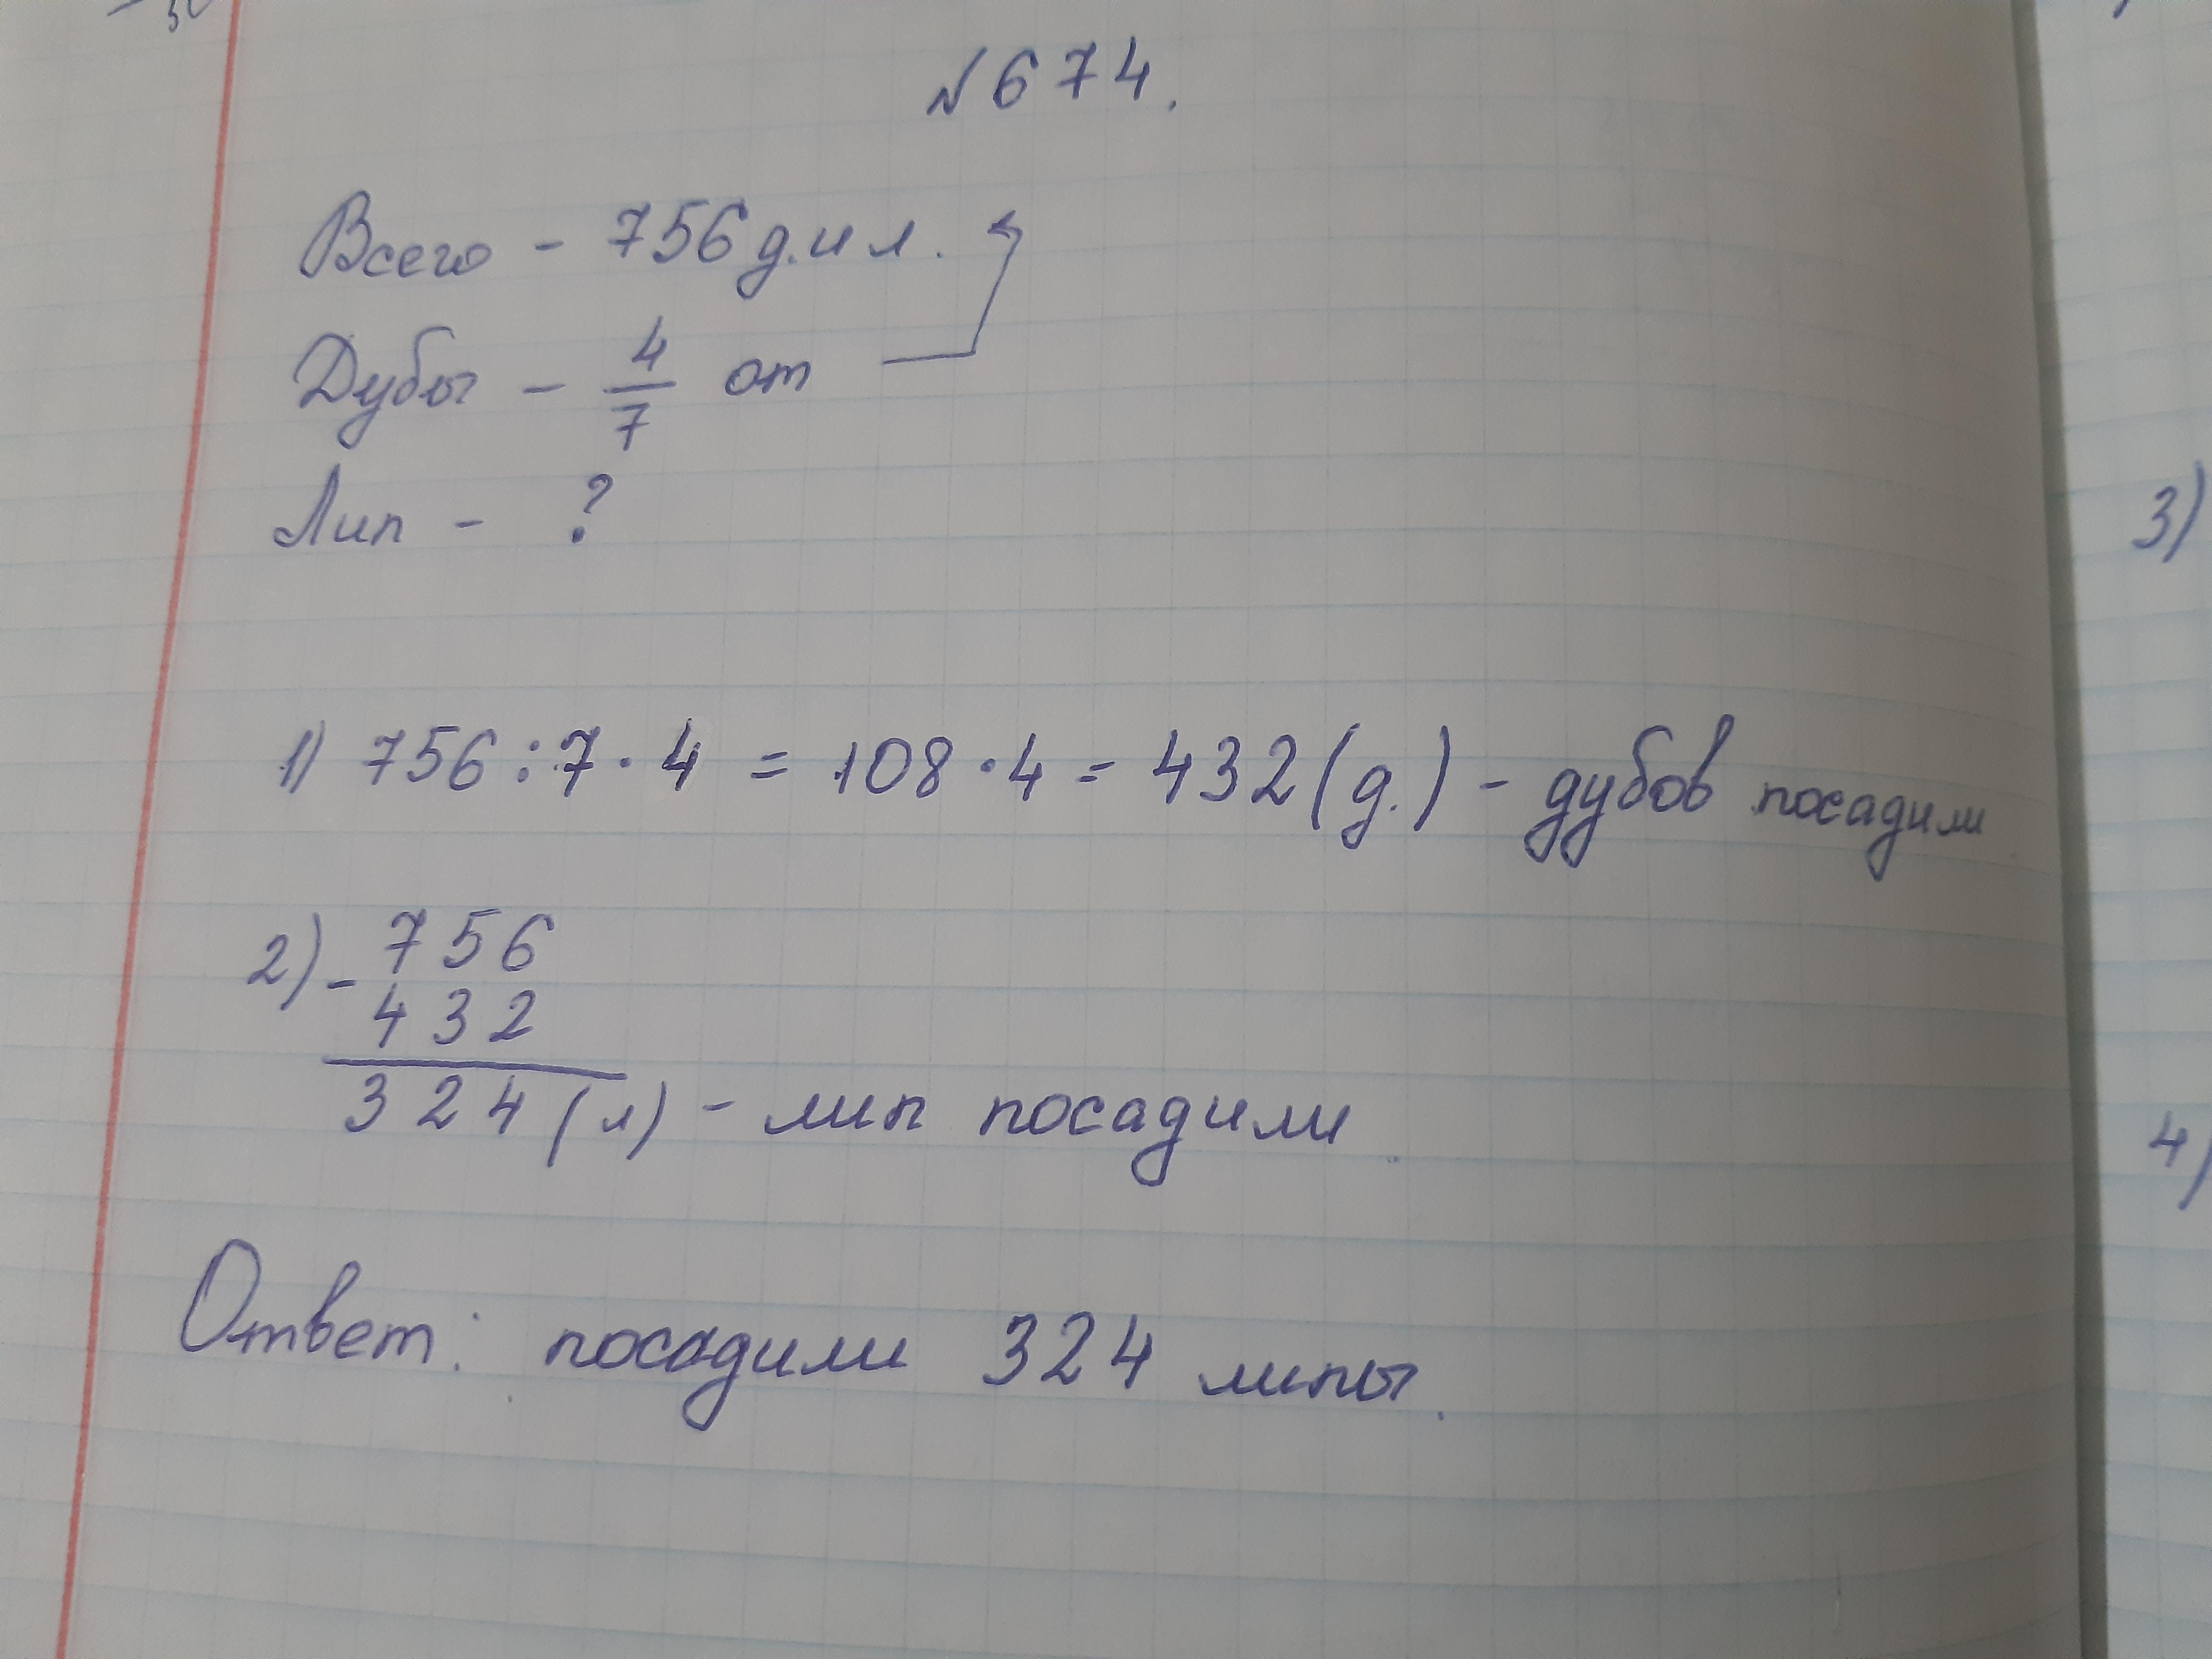 №674.
Всего - 756 д. и л.
Дубы - 4/7 от
Лип - ?
1) 756 : 7 · 4 = 108 · 4 = 432 (д.) - дубов посадили
2) - 756
432
324 (л) - лип посадили.
Ответ: посадили 324 липы.
3)
4)